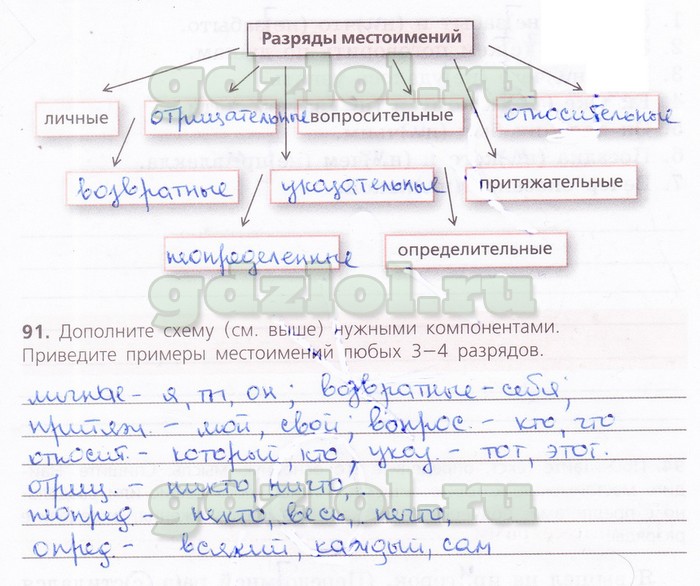 Разряды местоимений
gdzlol.ru
личные отрицательные вопросительные относительные
возвратные указательные притяжательные
неопределенные определительные
gdzlol.ru
91. Дополните схему (см. выше) нужными компонентами.
Приведите примеры местоимений любых 3—4 разрядов.
личные - я, ты, он; возвратные - себя;
притяж. - мой, свой; вопрос. - кто, что
gdzlol.ru
относит. - который, кто, указ. - тот, этот.
отриц. - никто, ничто,.
gdzlol.ru
неопред. - некто, весь, нечто,
опред. - всякий, каждый, сам